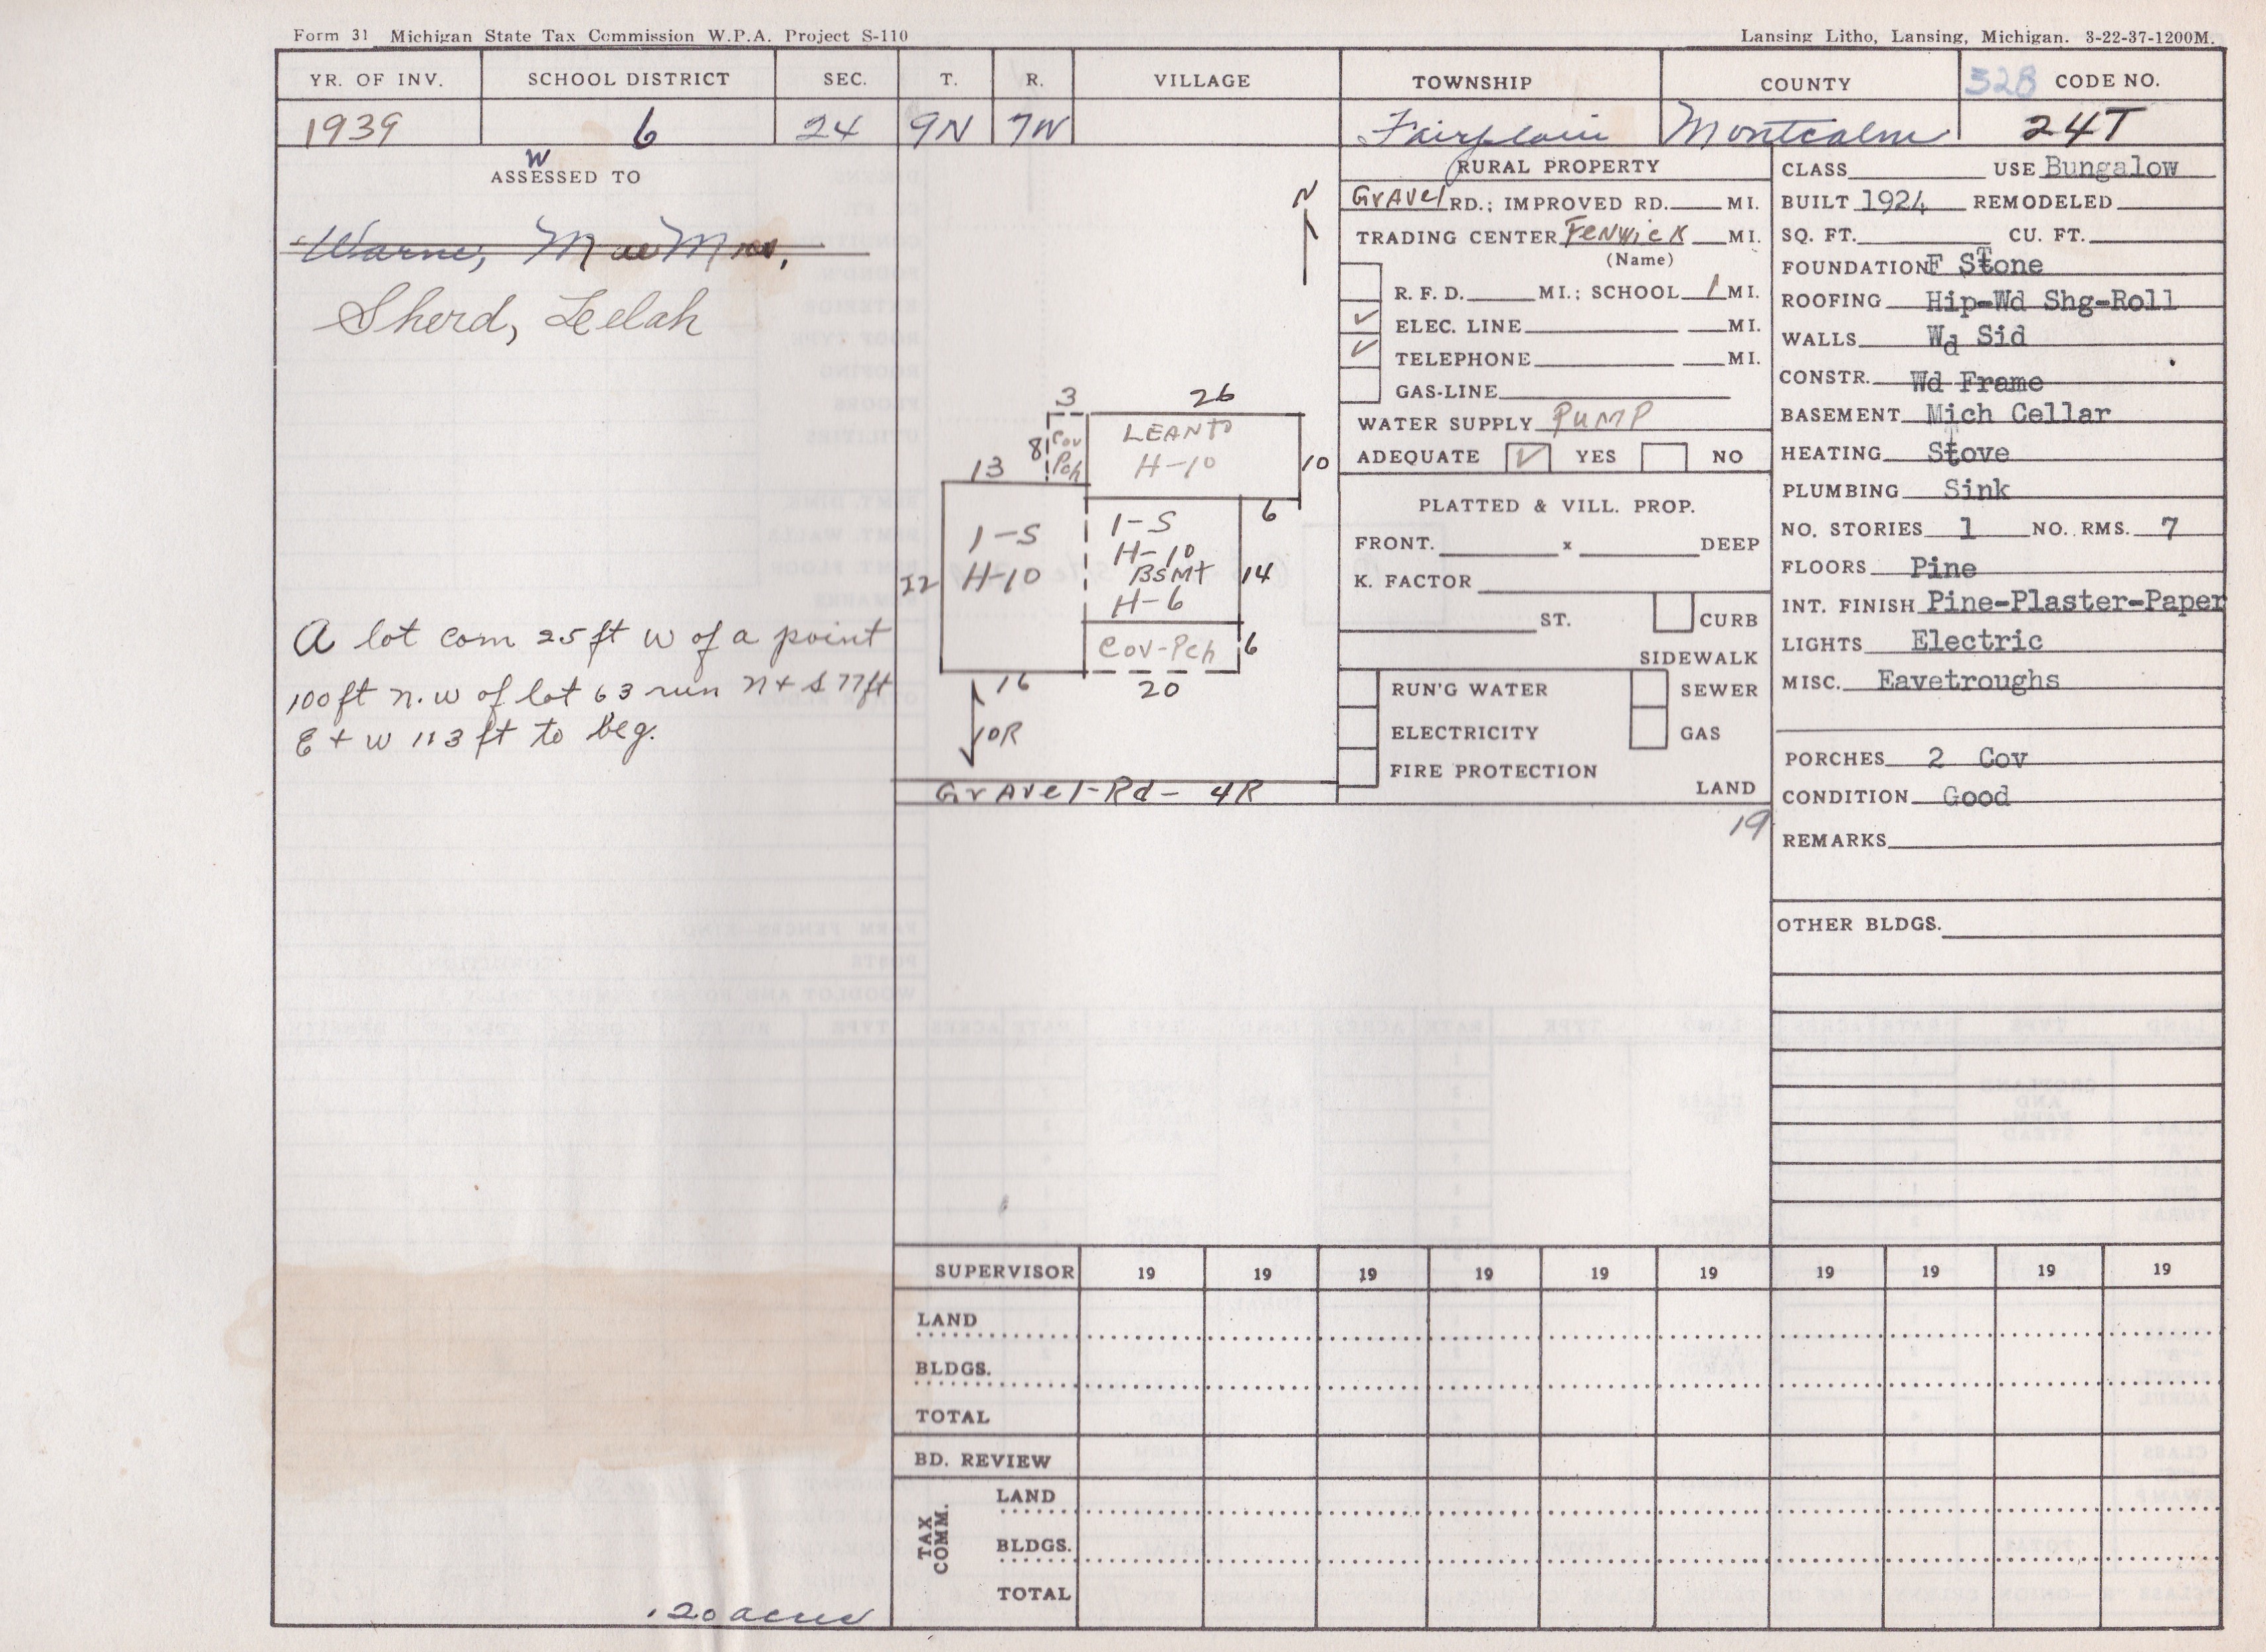 Form 31 Michigan State Tax Commission W.P.A. Project S-110
Lansing Litho, Lansing, Michigan. 3-22-37-1200M.
YR. OF INV. SCHOOL DISTRICT SEC. T. R. VILLAGE TOWNSHIP COUNTY 328 CODE NO.
1939 6 24 9N 7W Fairplain Montcalm 24T
W
ASSESSED TO
Warne, Mae Mrs.
Sherd, Lelah
A lot com 25 ft W of a point
100 ft n.w of lot 63 run n + s 77 ft
E + w 113 ft to beg.
.20 acres
N
3 26
8 Cov Pch
LEANTO
H-10
10
13
6
1-S
H-10
12
1-S
H-10
BSMT
H-6
14
Cov-Pch
6
16
20
10R
GrAvel-Rd- 4R
RURAL PROPERTY
GrAvel RD.; IMPROVED RD. MI.
TRADING CENTER FENWicK MI.
(Name)
R. F. D. MI.; SCHOOL 1 MI.
✓ ELEC. LINE MI.
✓ TELEPHONE MI.
GAS-LINE
WATER SUPPLY PUMP
ADEQUATE ✓ YES NO
PLATTED & VILL. PROP.
FRONT. x DEEP
K. FACTOR
ST. CURB
SIDEWALK
RUN'G WATER SEWER
ELECTRICITY GAS
FIRE PROTECTION
LAND
19
CLASS USE Bungalow
BUILT 1924 REMODELED
SQ. FT. CU. FT.
FOUNDATION F Stone
ROOFING Hip-Wd Shg-Roll
WALLS Wd Sid
CONSTR. Wd Frame
BASEMENT Mich Cellar
HEATING Stove
PLUMBING Sink
NO. STORIES 1 NO. RMS. 7
FLOORS Pine
INT. FINISH Pine-Plaster-Paper
LIGHTS Electric
MISC. Eavetroughs
PORCHES 2 Cov
CONDITION Good
REMARKS
OTHER BLDGS.
SUPERVISOR 19 19 19 19 19 19 19 19 19 19
LAND
BLDGS.
TOTAL
BD. REVIEW
TAX COMM.
LAND
BLDGS.
TOTAL